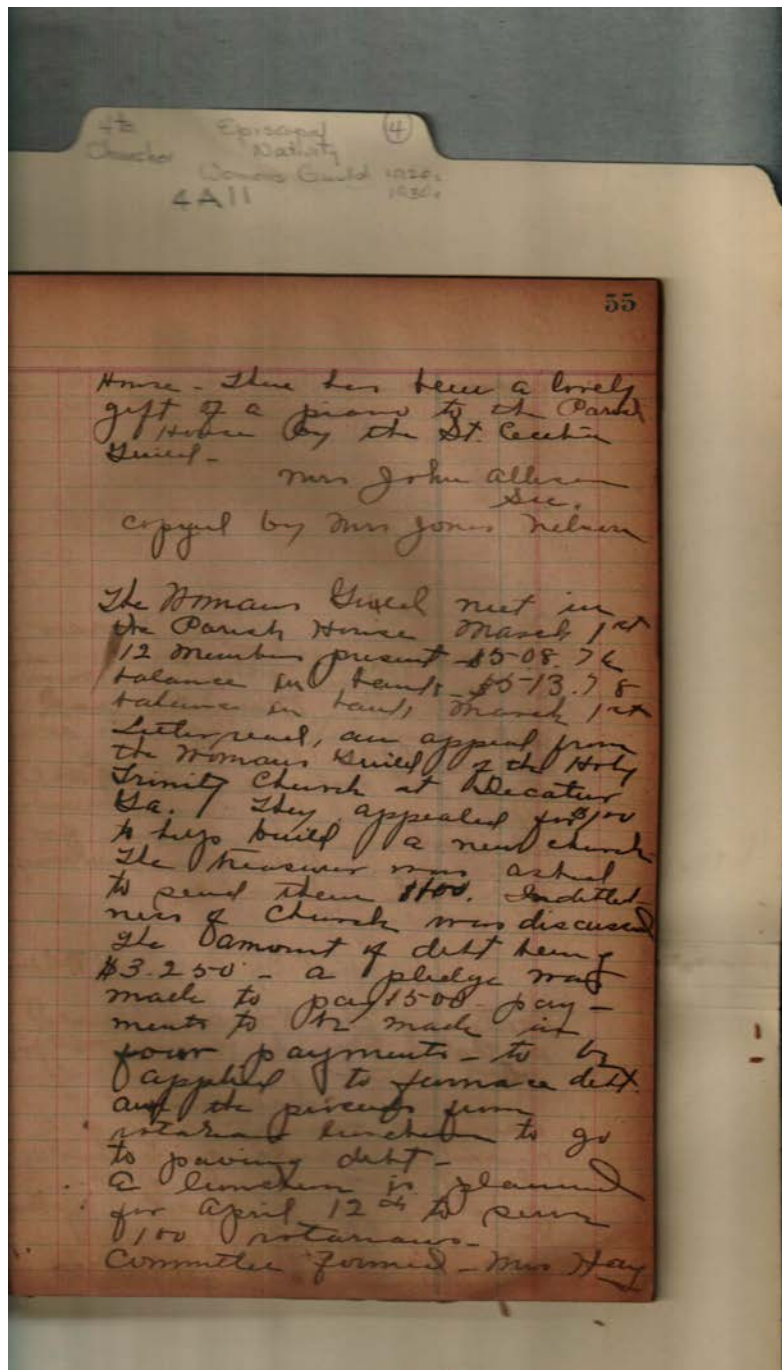 4th Episcopal ④
Churches Nativity
Womans Guild 1920s
4A11 1930s
55
House - There has been a lovely
gift of a piano to the Parish
House by the St. Cecelia
Guild -
Mrs John Allison
Sec.
copyed by Mrs Jones Nelson
The Womans Guild met in
the Parish House March 1st
12 Members present -
balance in bank - $513.78
balance in bank March 1st
Letter read, an appeal from
the Womans Guild of the Holy
Trinity Church at Decatur
Ga. They appealed for $1.00
to help build a new church
The treasurer was asked
to send them $1.00. Indebted-
ness of Church was discussed
The amount of debt being
$3.250 - a pledge was
made to pay 1500 pay-
ments to be made in
four payments - to be
applied to furnace debt.
and the from
rotarians luncheon to go
to paving debt -
A luncheon is planned
for April 12th to serve
100 rotarians -
Committee Formed - Mrs Hay